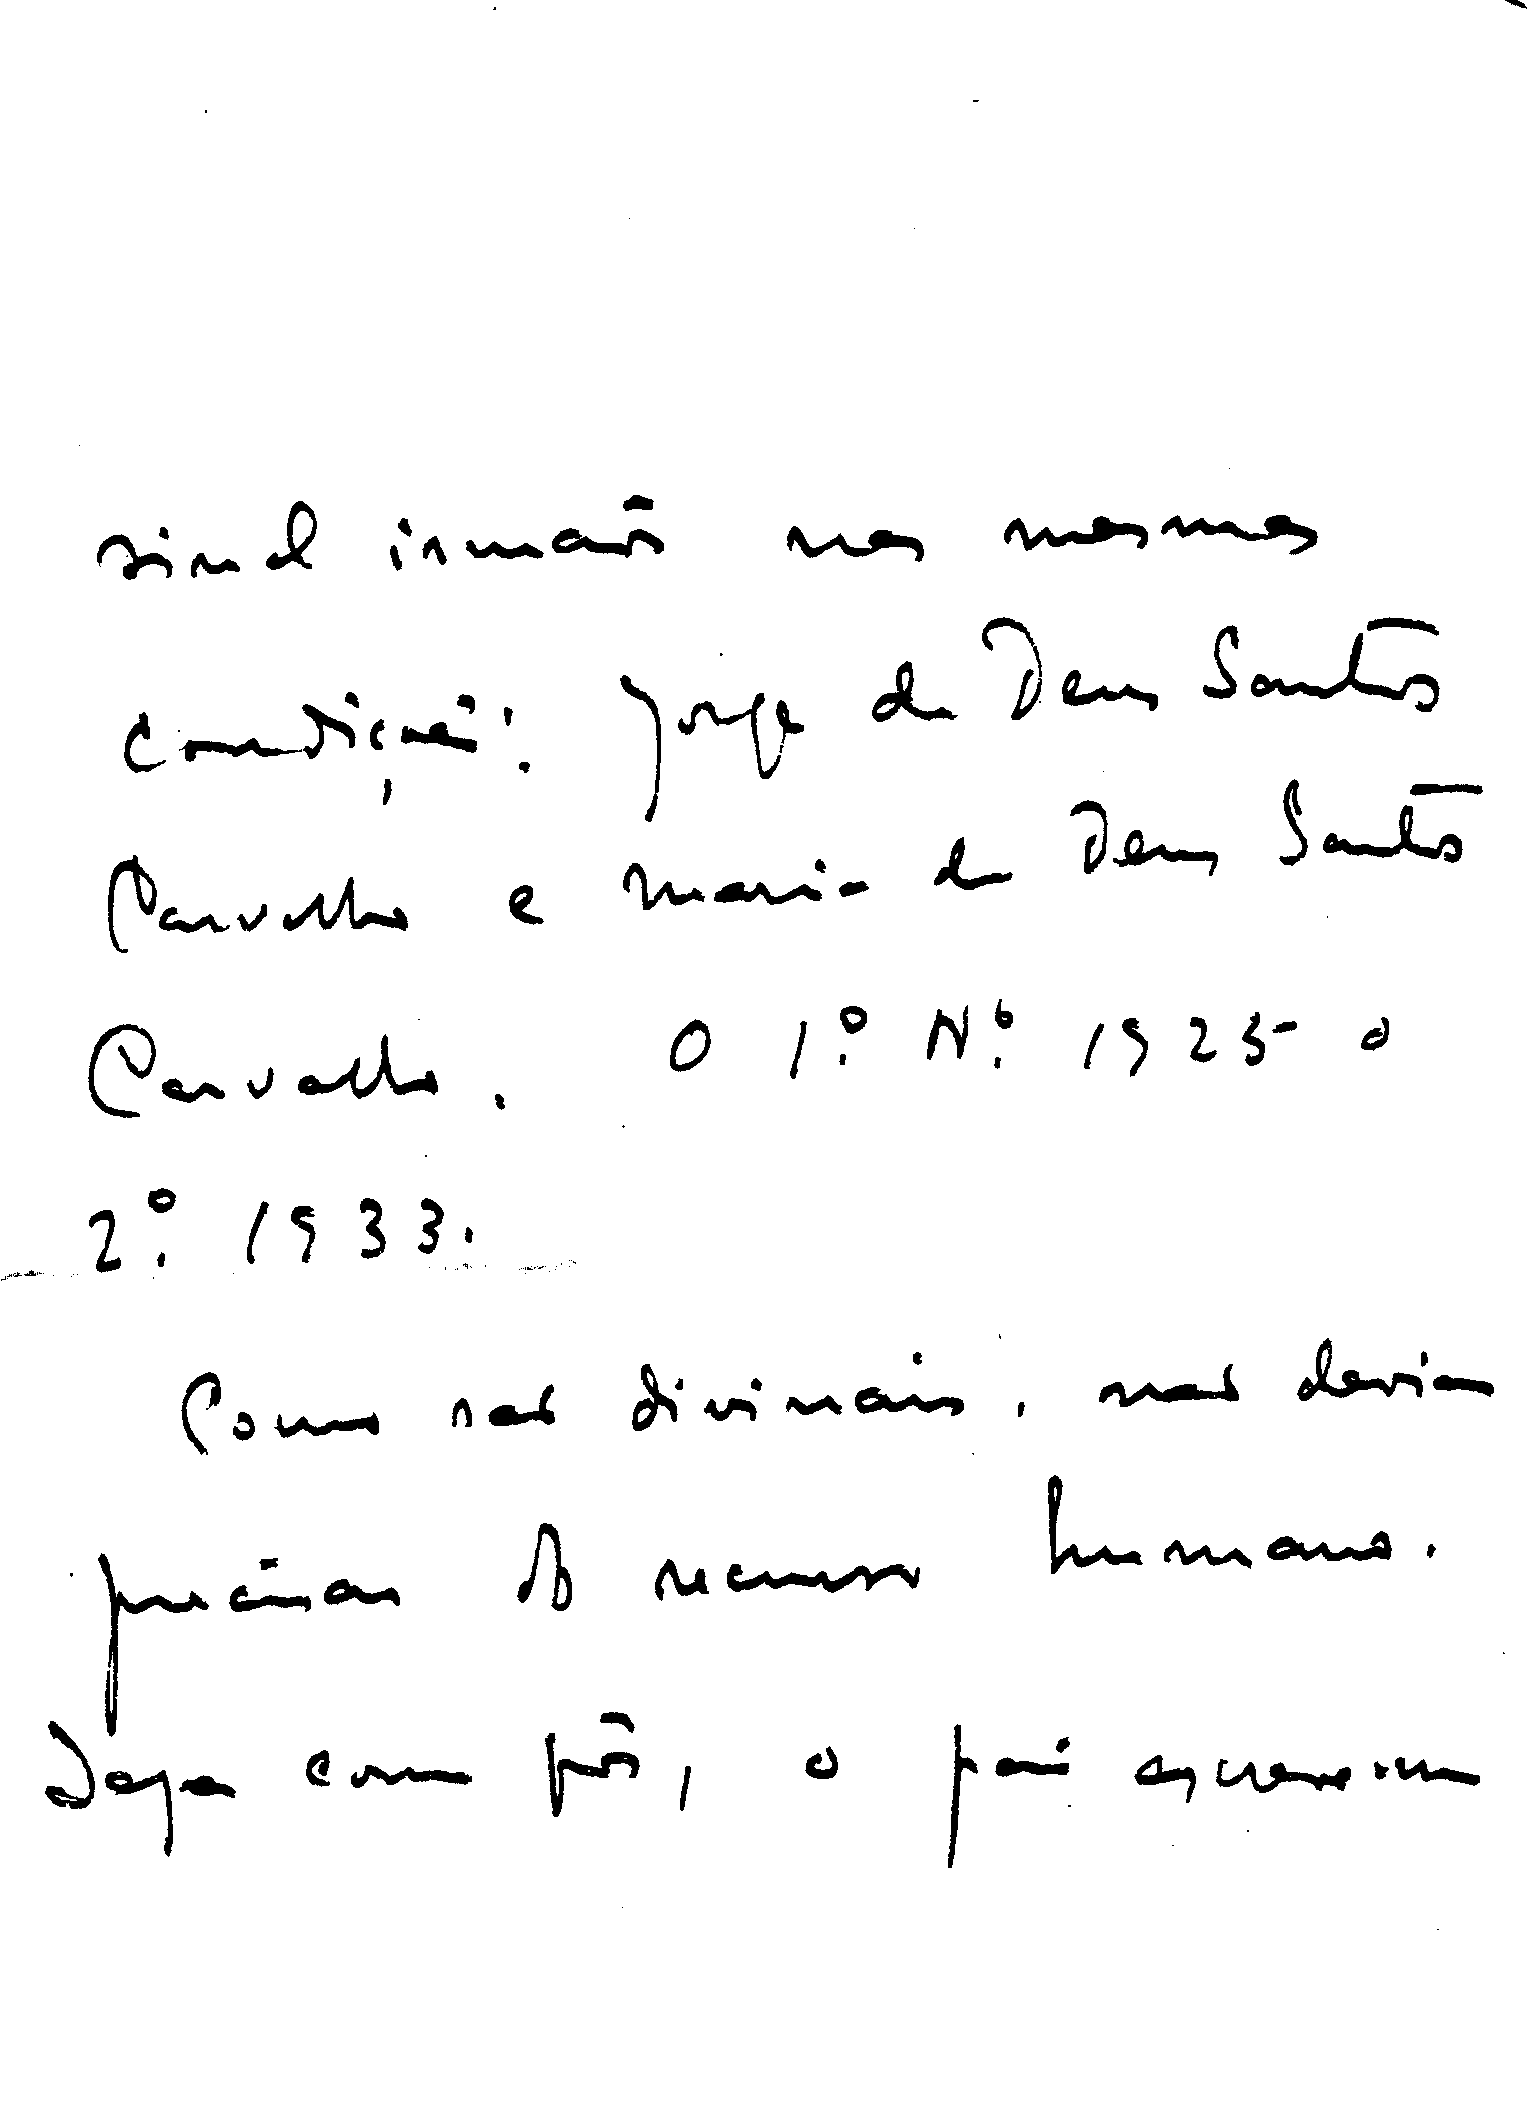 sinal irmãos nas mesmas
condições: Jorge de Deus Santos
Carvalho e Maria de Deus Santos
Carvalho. O 1.º Nº. 1925 o
2.º 1933.
Como são divinais, não deviam
precisar de recursos humanos.
Seja como fôr, o pai escreveu-me